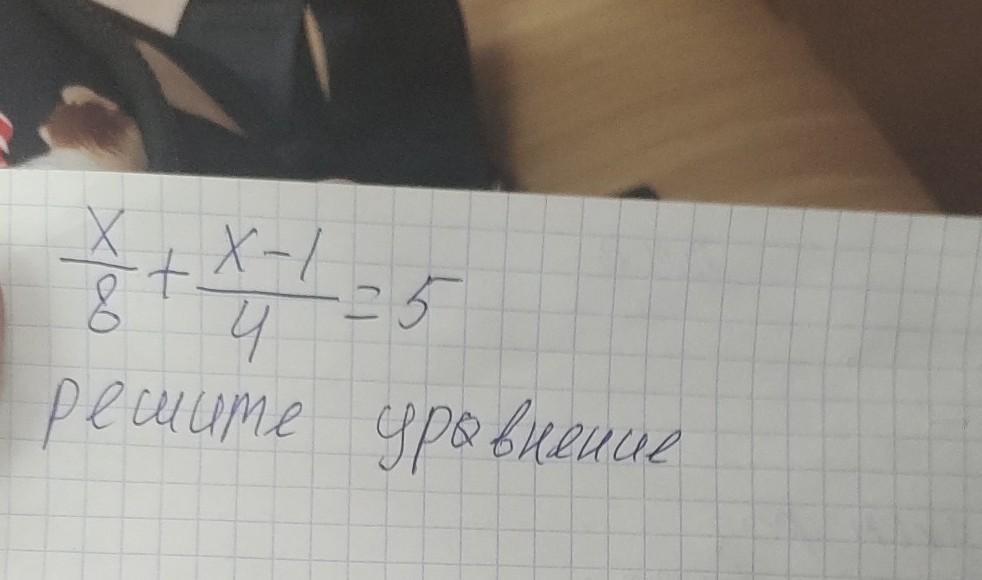 x/8 + x-1/4 = 5
решите уравнение